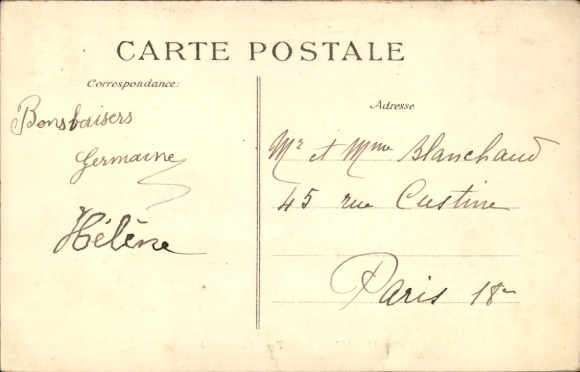 CARTE POSTALE
Correspondance:
Bonsbaisers
Germaine
Hélène
Adresse
Mr et Mme Blanchaud
45 rue Custine
Paris 18e